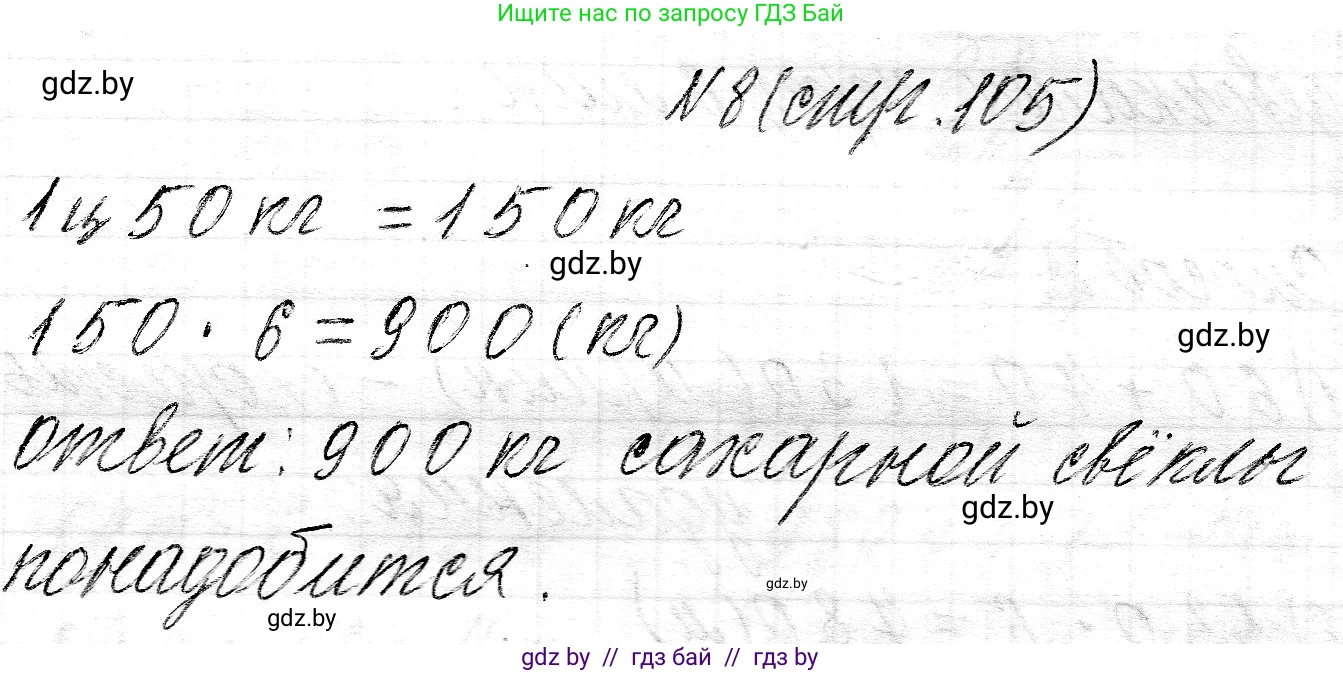 Ищите нас по запросу ГДЗ Бай
gdz.by
N 8 (стр. 105)
1ц 50 кг = 150 кг
gdz.by
150 · 6 = 900 (кг)
gdz.by
ответ: 900 кг сахарной свёклы
gdz.by
понадобится.
gdz.by
gdz.by
gdz by // гдз бай // гдз by